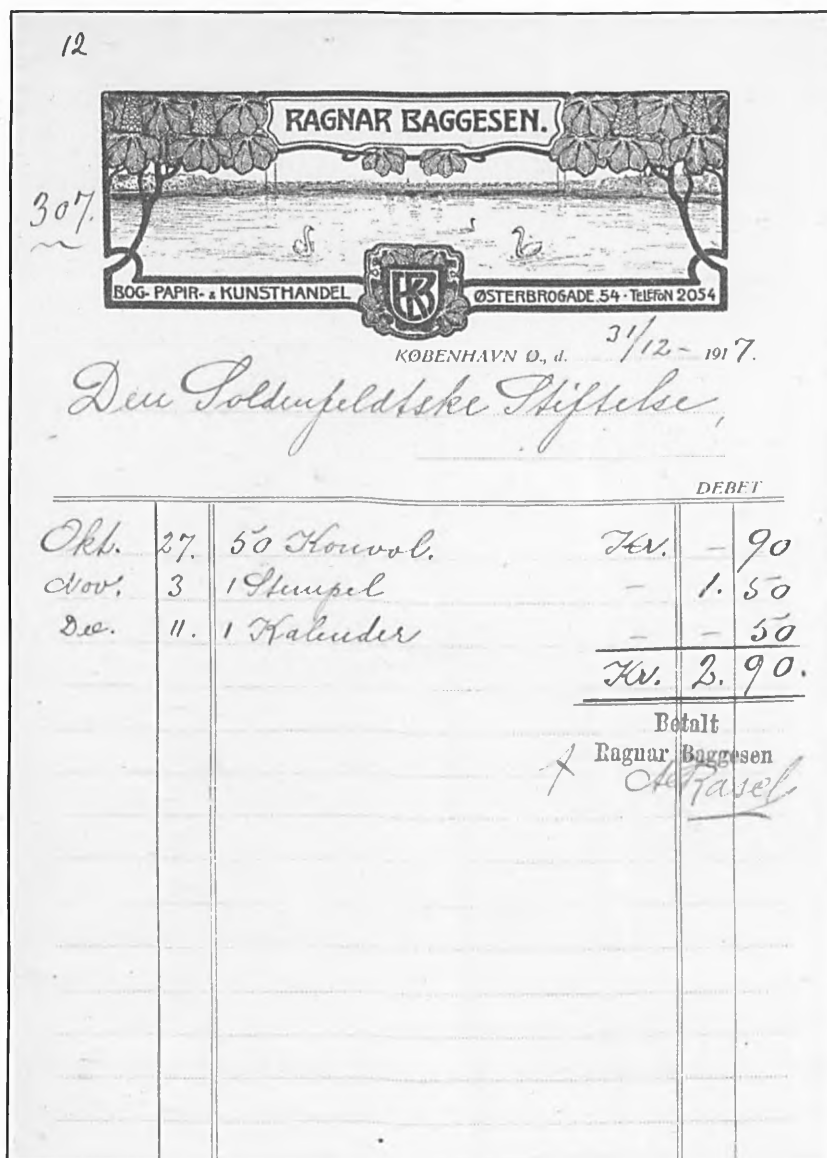 12
RAGNAR BAGGESEN.
307.
BOG- PAPIR- & KUNSTHANDEL
ØSTERBROGADE.54 · TELEFON 2054
KØBENHAVN Ø., d. 31/12 - 1917.
Den Soldenfeldtske Stiftelse,
DEBET
Okt. 27. 50 Konvol. Kr. - 90
Nov. 3 1 Stempel - 1. 50
Dec. 11. 1 Kalender - - 50
Kr. 2. 90.
Betalt
Ragnar Baggesen